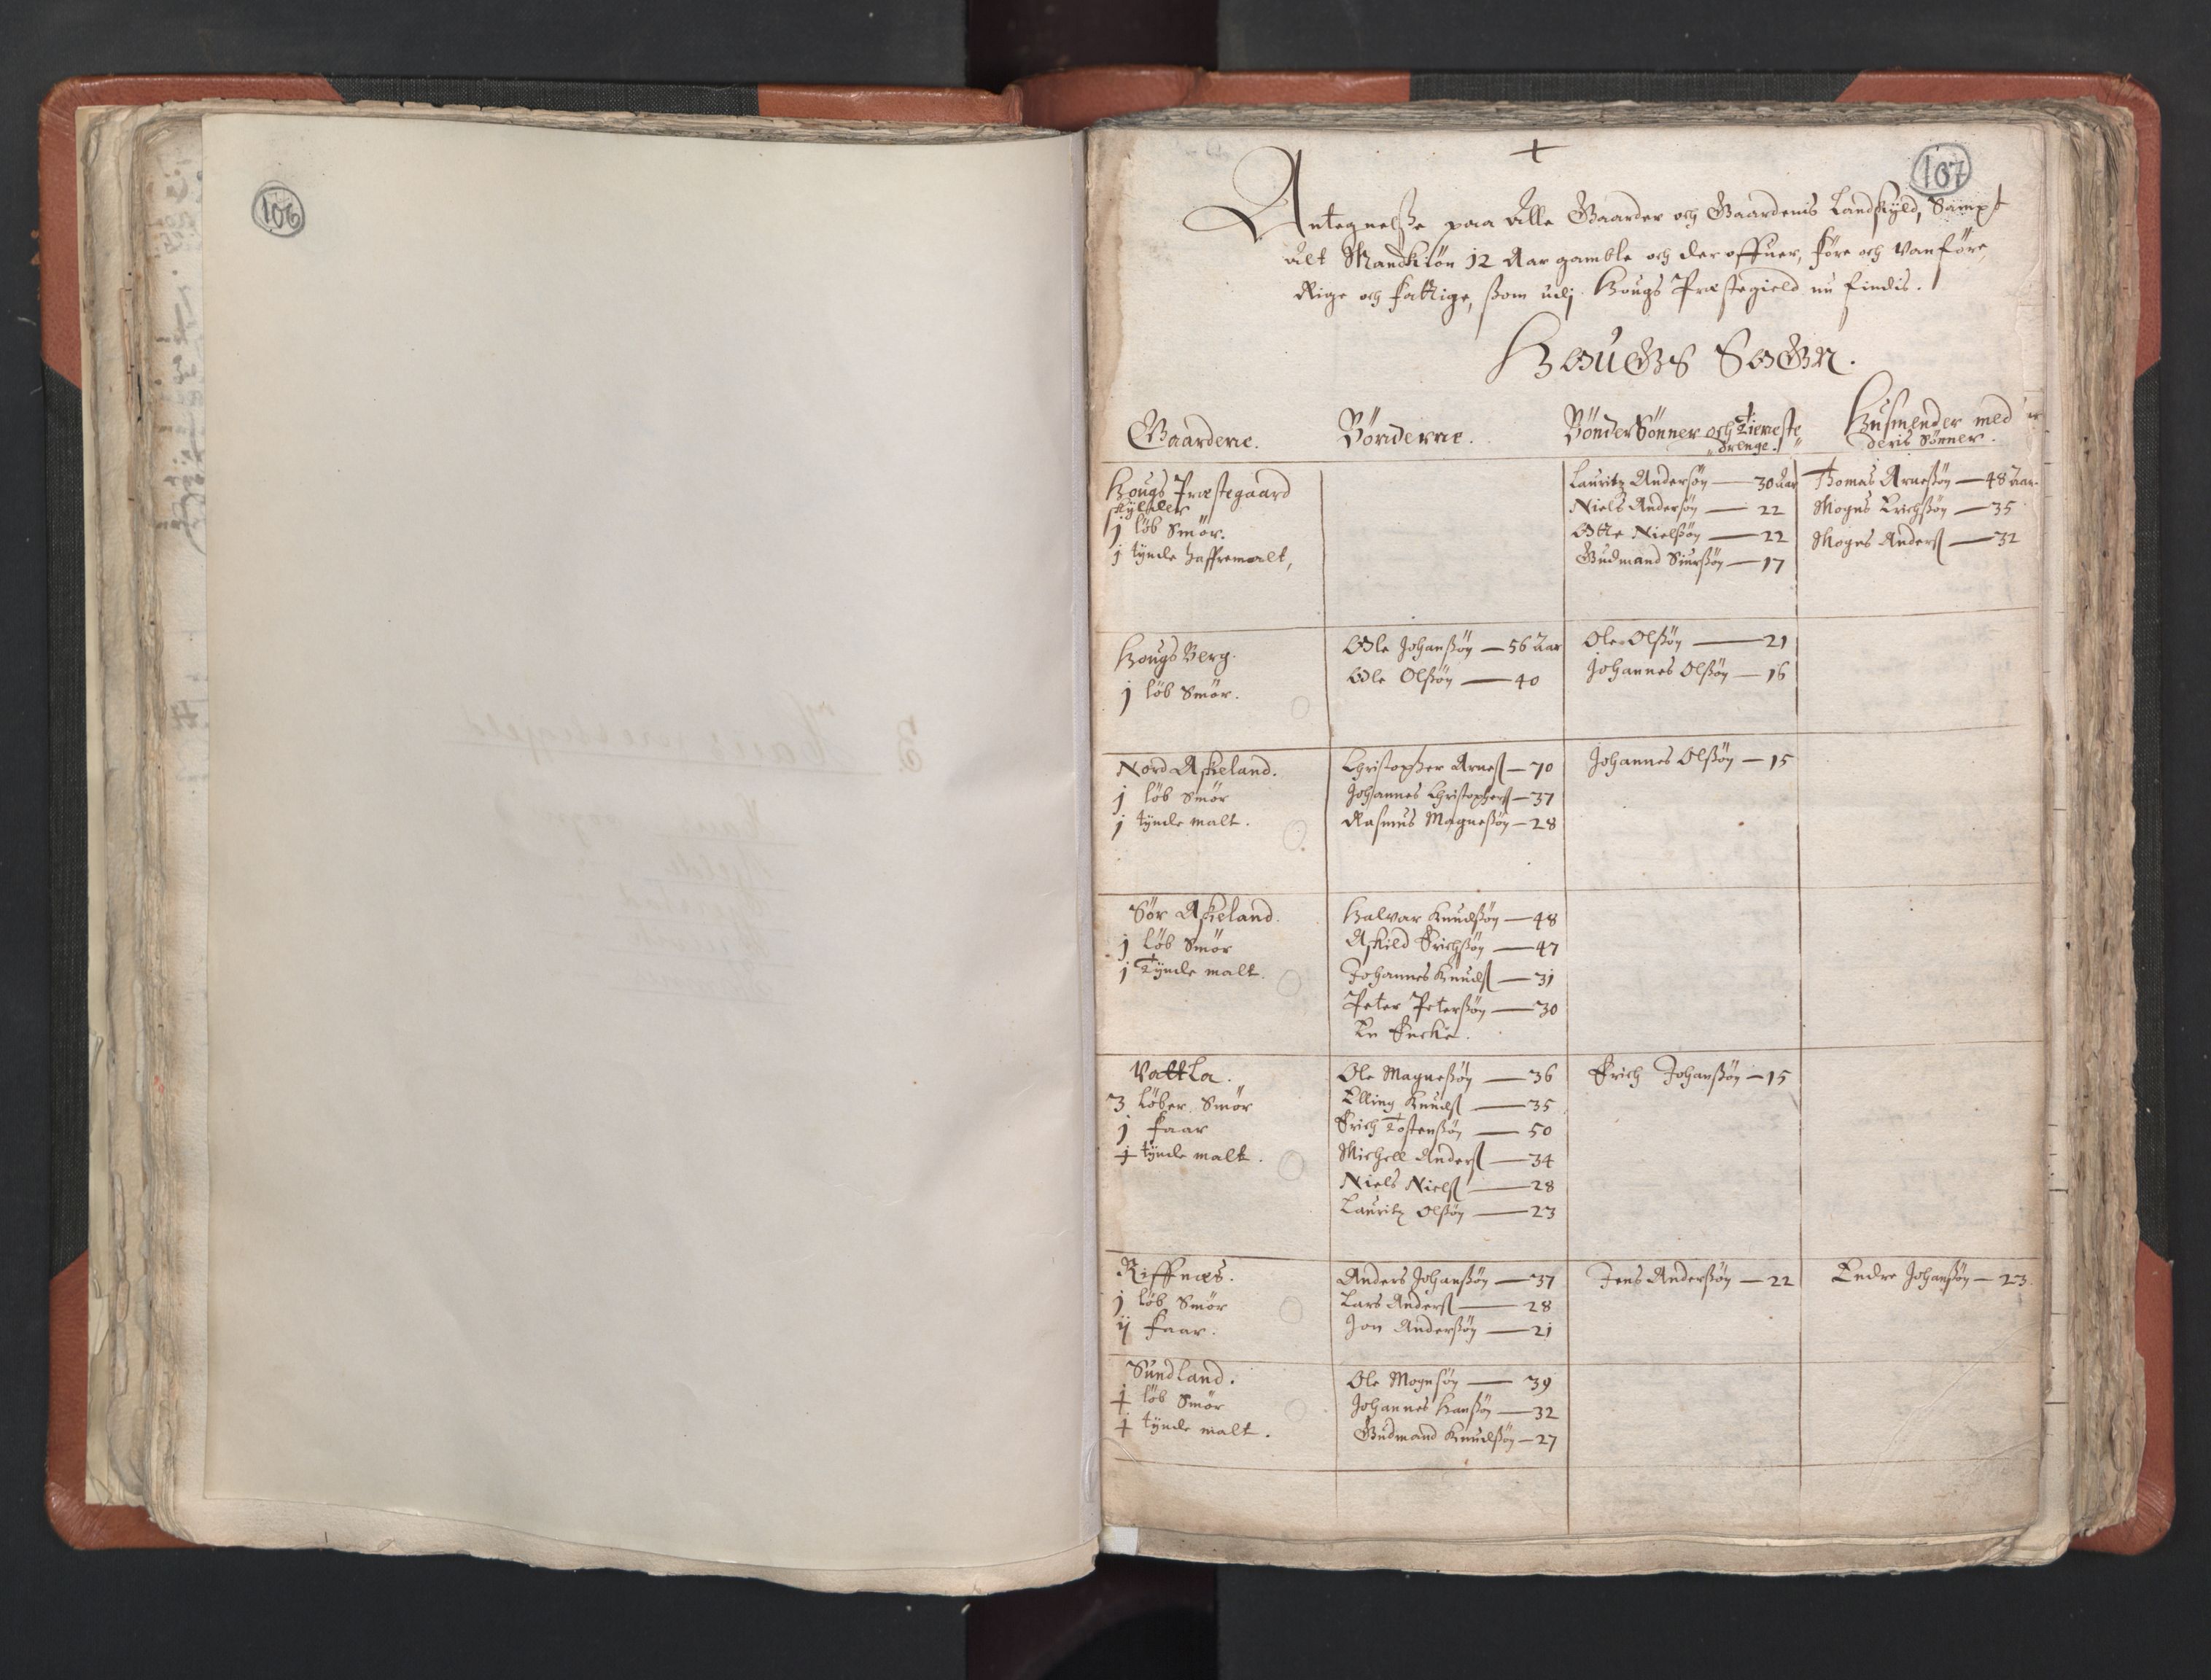 106
107
Antegnelsse paa Alle Gaarder och Gaardenis Landskyld, Sampt
alt Mandkiøn 12 Aar gamble och der offuer, føre och vanføre,
Rige och fattige, ssom udj Hougs Præstegield nu findis.
Hougs Sogn.
Gaardene.
Bönderne.
Bönder Sönner och Tieneste
drenge.
Husmender med
deris Sönner.
Hougs Præstegaard
skylder
j löb Smör.
j tynde haffremalt,
Lauritz Andersøn — 30 Aar
Niels Andersøn — 22
Otte Nielssøn — 22
Gudmand Siurssøn — 17
Thomas Arnessøn — 48 Aar.
Mogns Erichssøn — 35
Mogns Anderss — 32
Hougs Berg.
j löb Smör.
Ole Johanssøn — 56 Aar
Ole Olssøn — 40
Ole Olssøn — 21
Johannes Olssøn — 16
Nord Askeland.
j löb Smör
j tynde malt.
Christopher Arness — 70
Johannes Christopherss — 37
Rasmus Magnessøn — 28
Johannes Olssøn — 15
Sör Askeland.
j löb Smör
j Tynde malt.
Halvar Knudssøn — 48
Askild Erichssøn — 47
Johannes Knudss — 31
Peter Peterssøn — 30
En Encke.
Vattla.
3 löber Smör
j faar
+ tynde malt.
Ole Magnessøn — 36
Elling Knudss — 35
Erich Tostenssøn — 50
Michell Anderss — 34
Niels Nielss — 28
Lauritz Olssøn — 23
Erich Johanssøn — 15
Riffnæs.
j löb Smör
ij faar.
Anders Johanssøn — 37
Lars Anderss — 28
Jon Anderssøn — 21
Jens Anderssøn — 22
Endre Johanssøn — 23.
Sundland.
+ löb Smör
+ tynde malt.
Ole Mognsøn — 39
Johannes Hanssøn — 32
Gudmand Knudssøn — 27